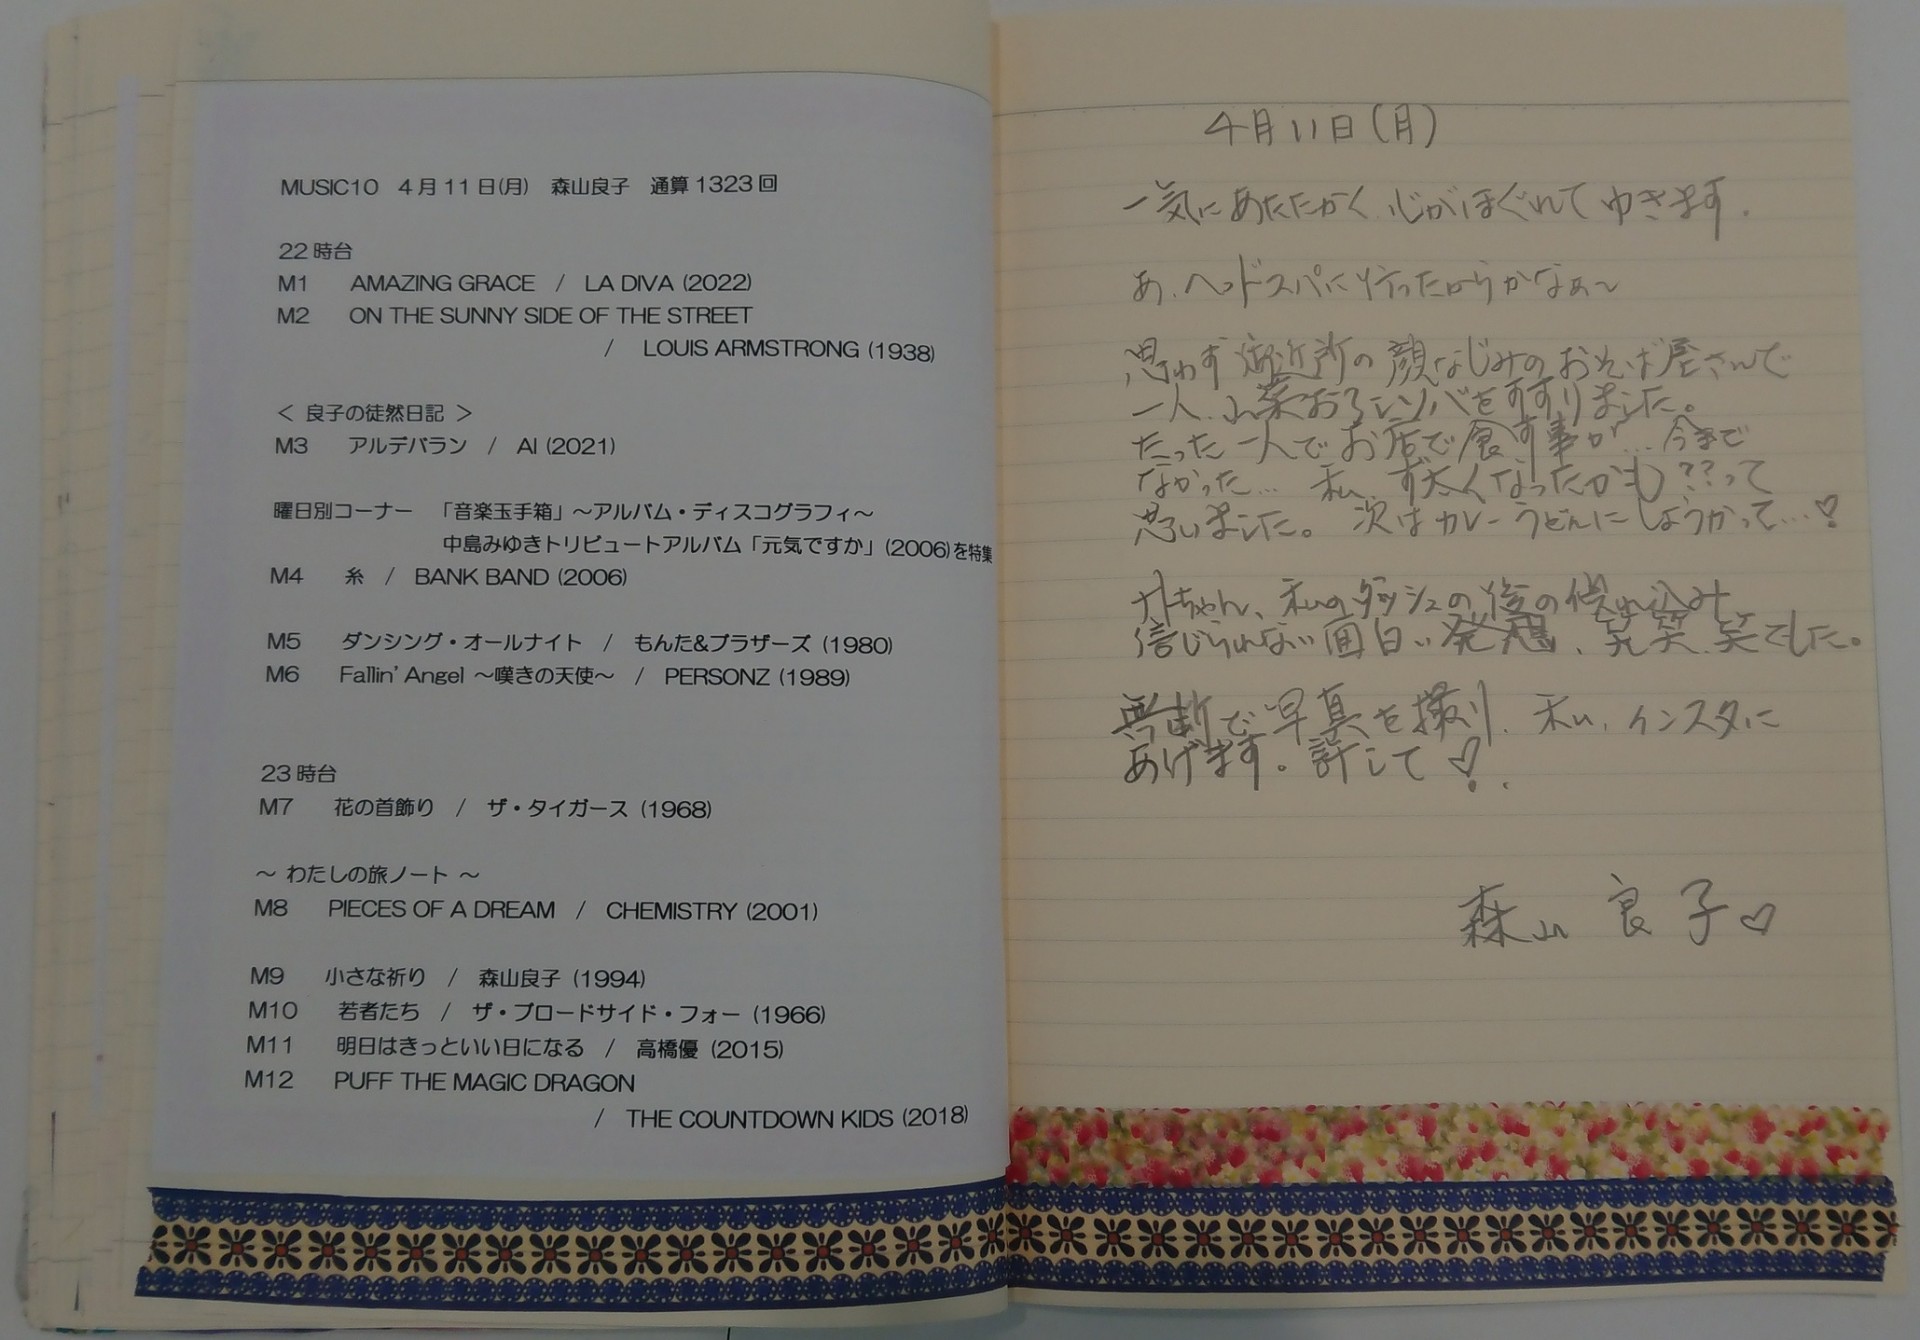 MUSIC10 4月11日(月) 森山良子 通算1323回
22時台
M1 AMAZING GRACE / LA DIVA (2022)
M2 ON THE SUNNY SIDE OF THE STREET
/ LOUIS ARMSTRONG (1938)
< 良子の徒然日記 >
M3 アルデバラン / AI (2021)
曜日別コーナー 「音楽玉手箱」～アルバム・ディスコグラフィ～
中島みゆきトリビュートアルバム「元気ですか」(2006)を特集
M4 糸 / BANK BAND (2006)
M5 ダンシング・オールナイト / もんた&ブラザーズ (1980)
M6 Fallin' Angel ～嘆きの天使～ / PERSONZ (1989)
23時台
M7 花の首飾り / ザ・タイガース (1968)
～ わたしの旅ノート ～
M8 PIECES OF A DREAM / CHEMISTRY (2001)
M9 小さな祈り / 森山良子 (1994)
M10 若者たち / ザ・ブロードサイド・フォー (1966)
M11 明日はきっといい日になる / 高橋優 (2015)
M12 PUFF THE MAGIC DRAGON
/ THE COUNTDOWN KIDS (2018)
4月11日(月)
一気にあたたかく 心がほぐれてゆきます.
あ、ヘッドスパに行ったからかなぁ〜
思わず御近所の顔なじみのおそば屋さんで
一人、山菜おろしソバをすすりました。
たった一人でお店で食す事が…今まで
なかった… 私、ず太くなったかも??って
思いました。 次はカレーうどんにしようかって…♡
私のダッシュの後の倒れ込み
信じられない面白い発想、笑笑、笑でした。
無断で写真を撮り、私、インスタに
あげます。許して♡!.
森山良子♡